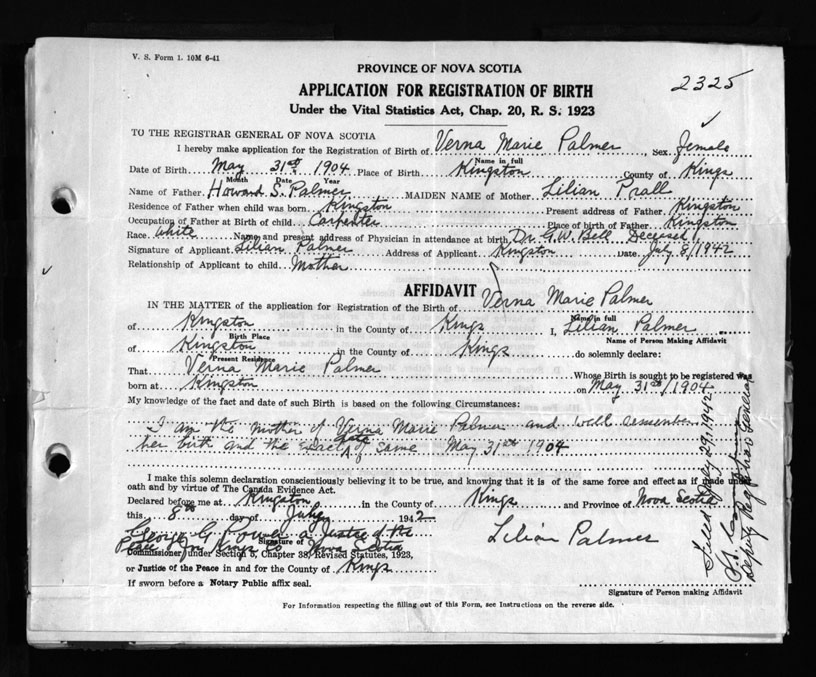 V. S. Form 1. 10M 6-41
PROVINCE OF NOVA SCOTIA
2325
APPLICATION FOR REGISTRATION OF BIRTH
Under the Vital Statistics Act, Chap. 20, R. S. 1923
TO THE REGISTRAR GENERAL OF NOVA SCOTIA
I hereby make application for the Registration of Birth of Verna Marie Palmer Sex female
Name in full
Date of Birth May 31st 1904 Place of Birth Kingston County of Kings
Month Date Year
Name of Father Howard S. Palmer MAIDEN NAME of Mother Lilian Prall
Residence of Father when child was born Kingston Present address of Father Kingston
Occupation of Father at Birth of child Carpenter Place of birth of Father Kingston
Race white Name and present address of Physician in attendance at birth Dr. G. W. Bell Deceased
Signature of Applicant Lilian Palmer Address of Applicant Kingston Date July 8/1942
Relationship of Applicant to child Mother
AFFIDAVIT
IN THE MATTER of the application for Registration of the Birth of Verna Marie Palmer
Name in full
of Kingston in the County of Kings I, Lilian Palmer
Birth Place Name of Person Making Affidavit
of Kingston in the County of Kings do solemnly declare:
Present Residence
That Verna Marie Palmer Whose Birth is sought to be registered was
born at Kingston on May 31st/1904
My knowledge of the fact and date of such Birth is based on the following Circumstances:
I am the mother of Verna Marie Palmer and well remember
her birth and the exact date of same May 31st 1904
I make this solemn declaration conscientiously believing it to be true, and knowing that it is of the same force and effect as if made under
oath and by virtue of The Canada Evidence Act.
Declared before me at Kingston in the County of Kings and Province of Nova Scotia
this 8th day of July 1942
George G. a Justice of the
Signature of
Peace for Kings Co Nova Scotia
Lilian Palmer
Commissioner under Section 5, Chapter 38, Revised Statutes, 1923,
or Justice of the Peace in and for the County of Kings
If sworn before a Notary Public affix seal.
Signature of Person making Affidavit
For Information respecting the filling out of this Form, see Instructions on the reverse side.
Filed July 29, 1942
Deputy Registrar General